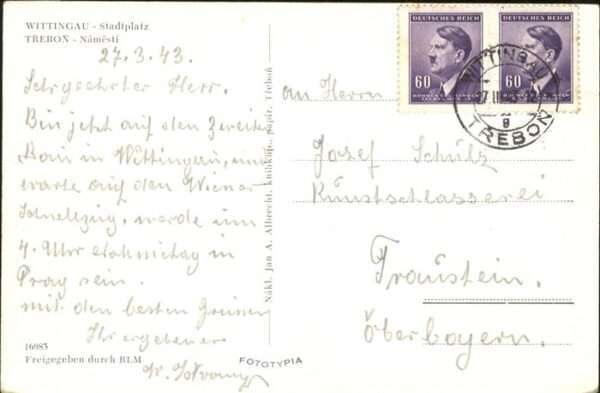 WITTINGAU - Stadtplatz
TŘEBOŇ - Náměstí
27.3.43.
Sehrgeehrter Herr.
Bin jetzt auf den Zweiten
in Wittingau, und
warte auf den Wiener
Schnellzug, werde um
4. Uhr nachmitag in
Prag sein.
mit den besten Grüssen
Ihr ergebener
16985
Freigegeben durch RLM
FOTOTYPIA
Nákl. Jan A. Albrecht, knihkup., papír. Třeboň
DEUTSCHES REICH
60
DEUTSCHES REICH
60
WITTINGAU
TŘEBOŇ
an Herrn
Josef Schülz
Kunstschlosserei
Traunstein.
Oberbayern.